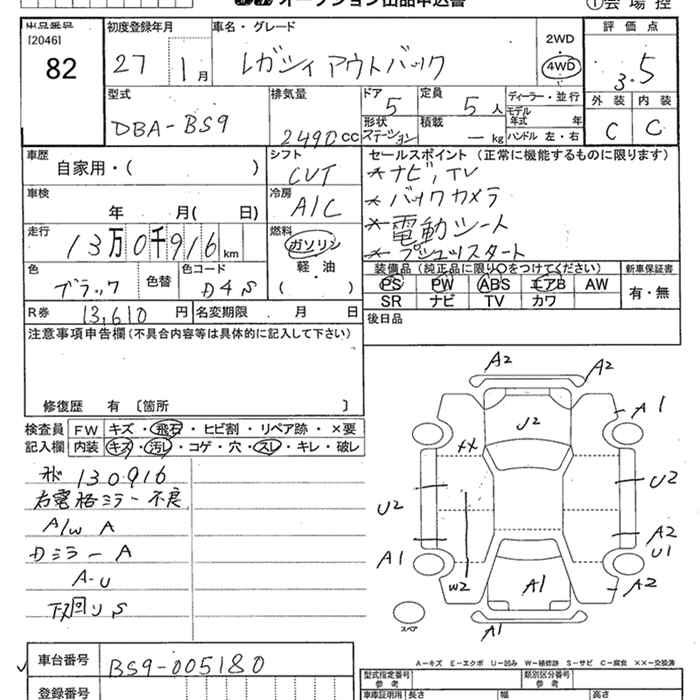 オークション出品申込書
①会場控
出品番号
[2046]
82
初度登録年月
27 1月
車名・グレード
レガシィ アウトバック
2WD
4WD
評価点
3.5
外装 内装
C C
型式
DBA-BS9
排気量
2490cc
ドア
5
定員
5人
形状
ステーション
積載
—kg
ディーラー・並行
モデル年式 年
ハンドル 左・右
車歴
自家用・( )
シフト
CVT
セールスポイント(正常に機能するものに限ります)
*ナビ,TV
*バックカメラ
*電動シート
*プシュッスタート
車検
年 月( 日)
冷房
A/C
走行
13万0千916km
燃料
ガソリン
軽・油
( ・ )
色
ブラック
色替
色コード
D4S
装備品(純正品に限り○をつけてください)
PS PW ABS エアB AW
SR ナビ TV カワ
新車保証書
有・無
R券
13,610円
名変期限 月 日
後日品
注意事項申告欄(不具合内容等は具体的に記入して下さい)
修復歴 有 〔箇所 〕
検査員記入欄
FW キズ・飛石・ヒビ割・リペア跡・×要
内装 キズ・汚レ・コゲ・穴・スレ・キレ・破レ
130916
右電格ミラー不良
A/W A
Dミラー A
A-U
下回りS
A2
A2
A1
U2
XX
U2
U2
A2
U1
A1
W2
A1
A2
A1
スペア
A-キズ E-エクボ U-凹み W-補修跡 S-サビ C-腐食 ××-交換済
車台番号
BS9-005180
登録番号
型式指定番号
参考
類別区分番号
参考
車庫証明用 長さ 幅 高さ